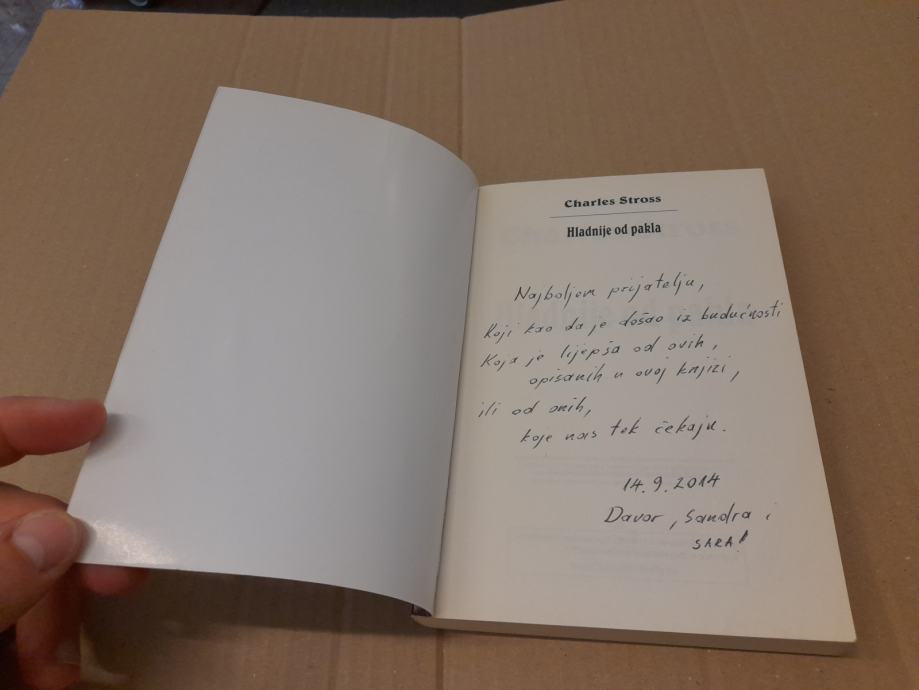 Charles Stross
Hladnije od pakla
Najboljem prijatelju,
Koji kao da je došao iz budućnosti
Koja je lijepša od ovih,
opisanih u ovoj knjizi,
ili od onih,
koje nas tek čekaju.
14.9.2014
Davor, Sandra i
SARA!